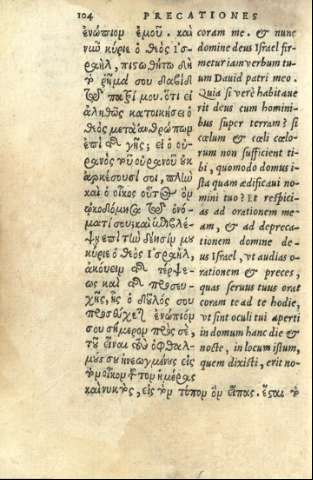 104 PRECATIONES
ἐνώπιον ἐμοῦ. καὶ
νιῶ κύριε ὁ θεὸς Ἰσ-
ραὴλ, πιστωθήτω δὴ
τὸ ῥῆμά σου δαβὶδ
τῷ πατρί μου. ὅτι εἰ
ἀληθῶς κατοικήσει ὁ
θεὸς μετὰ ἀνθρώπων
ἐπὶ τῆς γῆς; εἰ ὁ οὐ-
ρανὸς τοῦ οὐρανοῦ οὐκ
ἀρκέσουσί σοι, πλὼ
καὶ ὁ οἶκος οὗτος ὃν
ᾠκοδόμησα τῷ ὀνό-
ματί σου; καὶ ἐπιβλέ-
ψῃ ἐπὶ τὼ δέησίν μου
κύριε ὁ θεὸς Ἰσραὴλ,
ἀκούειν τῆς τέρψε-
ως καὶ τῆς προσευ-
χῆς, ἧς ὁ δοῦλός σου
προσεύχεται ἐνώπιόν
σου σήμερον πρὸς σὲ,
τοῦ εἶναι τοὺς ὀφθαλ-
μούς σου ἠνεωγμένους εἰς
τὸν οἶκον τοῦτον ἡμέρας
καὶ νυκτὸς, εἰς τὸν τόπον ὃν εἶπας. ἔσται τὸ
coram me. & nunc
domine deus Israel fir-
metur iam verbum tu-
um Dauid patri meo.
Quia si verè habitaue
rit deus cum homini-
bus super terram? si
cælum & cæli cælo-
rum non sufficient ti-
bi, quomodo domus i-
sta quam ædificaui no-
mini tuo? Et respici-
as ad orationem me-
am, & ad depreca-
tionem domine de-
us Israel, vt audias o-
rationem & preces,
quas seruus tuus orat
coram te ad te hodie,
vt sint oculi tui aperti
in domum hanc die &
nocte, in locum istum,
quem dixisti, erit no-